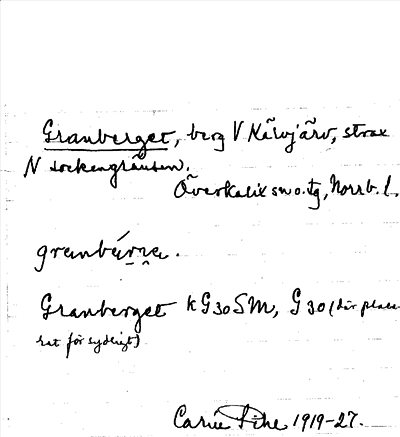 Granberget, berg V Kälvjärv, strax
N sockengränsen.
Överkalix sn o. tg, Norrb. l.
granbǽrn̥a.
Granberget kG30SM, G30 (där place-
rat för sydligt)
Carin Pihl 1919-27.